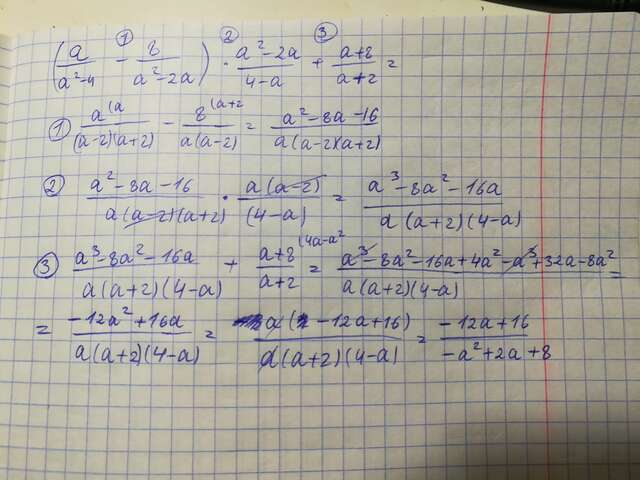 (a/(a²-4) ① - 8/(a²-2a)) ② · (a²-2a)/(4-a) ③ + (a+8)/(a+2) =
① a(a/((a-2)(a+2)) - 8(a+2/(a(a-2)) = (a²-8a-16)/(a(a-2)(a+2))
② (a²-8a-16)/(a(a-2)(a+2)) · (a(a-2))/((4-a)) = (a³-8a²-16a)/(a(a+2)(4-a))
③ (a³-8a²-16a)/(a(a+2)(4-a)) + (a+8(4a-a²)/(a+2) = (a³-8a²-16a+4a²-a³+32a-8a²)/(a(a+2)(4-a)) =
= (-12a²+16a)/(a(a+2)(4-a)) = (a(-12a+16))/(a(a+2)(4-a)) = (-12a+16)/(-a²+2a+8)